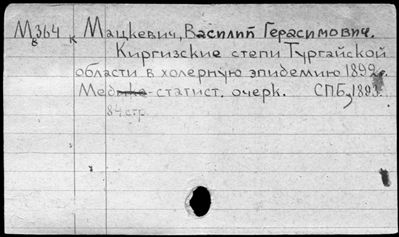 М364 к Мацкевич, Василий Герасимович.
8
Киргизские степи Тургайской
области в холерную эпидемию 1892 г.
Мед.-статист. очерк. СПБ, 1893.
84 стр.